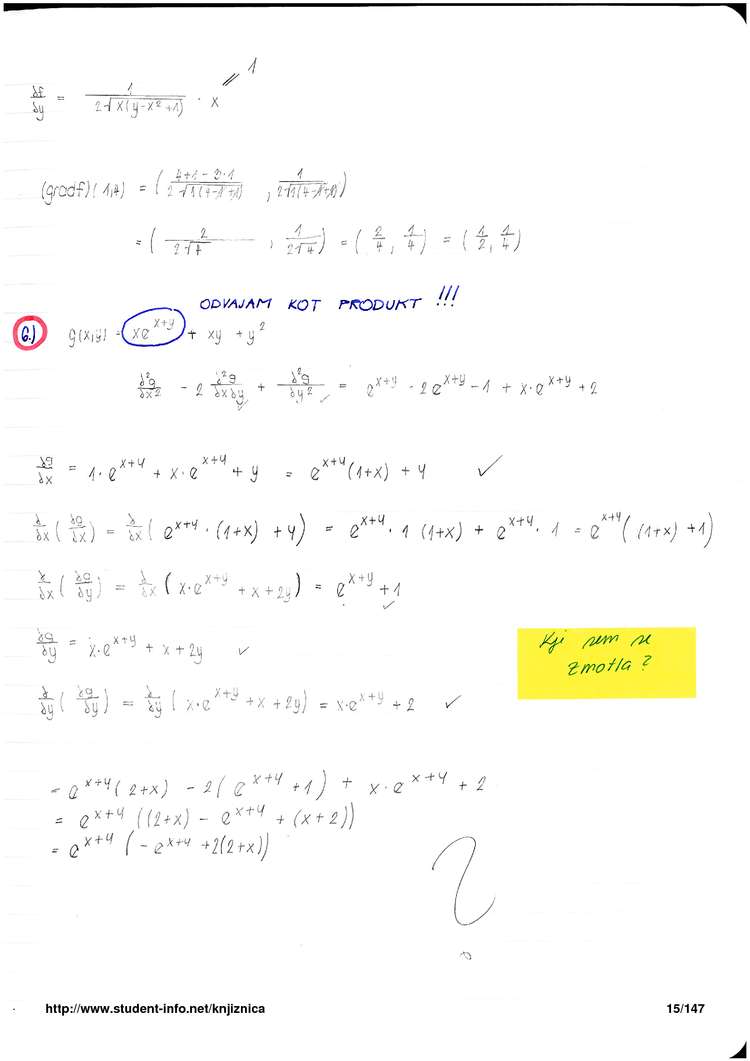 1
∂f/∂y = 1/(2√(x(y-x²+1))) · x
(gradf)(1,4) = ( (4+1-3·1)/(2√(1(4-1²+1))) , 1/(2√(1(4-1²+1))) )
= ( 2/(2√4) , 1/(2√4) ) = ( 2/4 , 1/4 ) = ( 1/2 , 1/4 )
ODVAJAM KOT PRODUKT !!!
6.) g(x,y) = xe^(x+y) + xy + y²
∂²g/∂x² - 2 ∂²g/∂x∂y + ∂²g/∂y² = e^(x+y) - 2e^(x+y) - 1 + x·e^(x+y) + 2
∂g/∂x = 1·e^(x+y) + x·e^(x+y) + y = e^(x+y)(1+x) + y ✓
∂/∂x (∂g/∂x) = ∂/∂x ( e^(x+y) · (1+x) + y) = e^(x+y) · 1 (1+x) + e^(x+y) · 1 = e^(x+y) ( (1+x) + 1)
∂/∂x (∂g/∂y) = ∂/∂x ( x·e^(x+y) + x + 2y) = e^(x+y) + 1 ✓
∂g/∂y = x·e^(x+y) + x + 2y ✓
Kje sem se
zmotla?
∂/∂y (∂g/∂y) = ∂/∂y ( x·e^(x+y) + x + 2y) = x·e^(x+y) + 2 ✓
= e^(x+y) (2+x) - 2( e^(x+y) + 1) + x·e^(x+y) + 2
= e^(x+y) ((2+x) - e^(x+y) + (x+2))
= e^(x+y) (-e^(x+y) + 2(2+x))
?
http://www.student-info.net/knjiznica 15/147